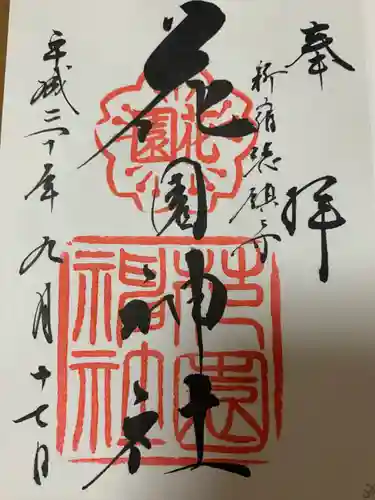 奉拝
新宿総鎮守
花園神社
平成三十年九月十七日
花園
花園神社